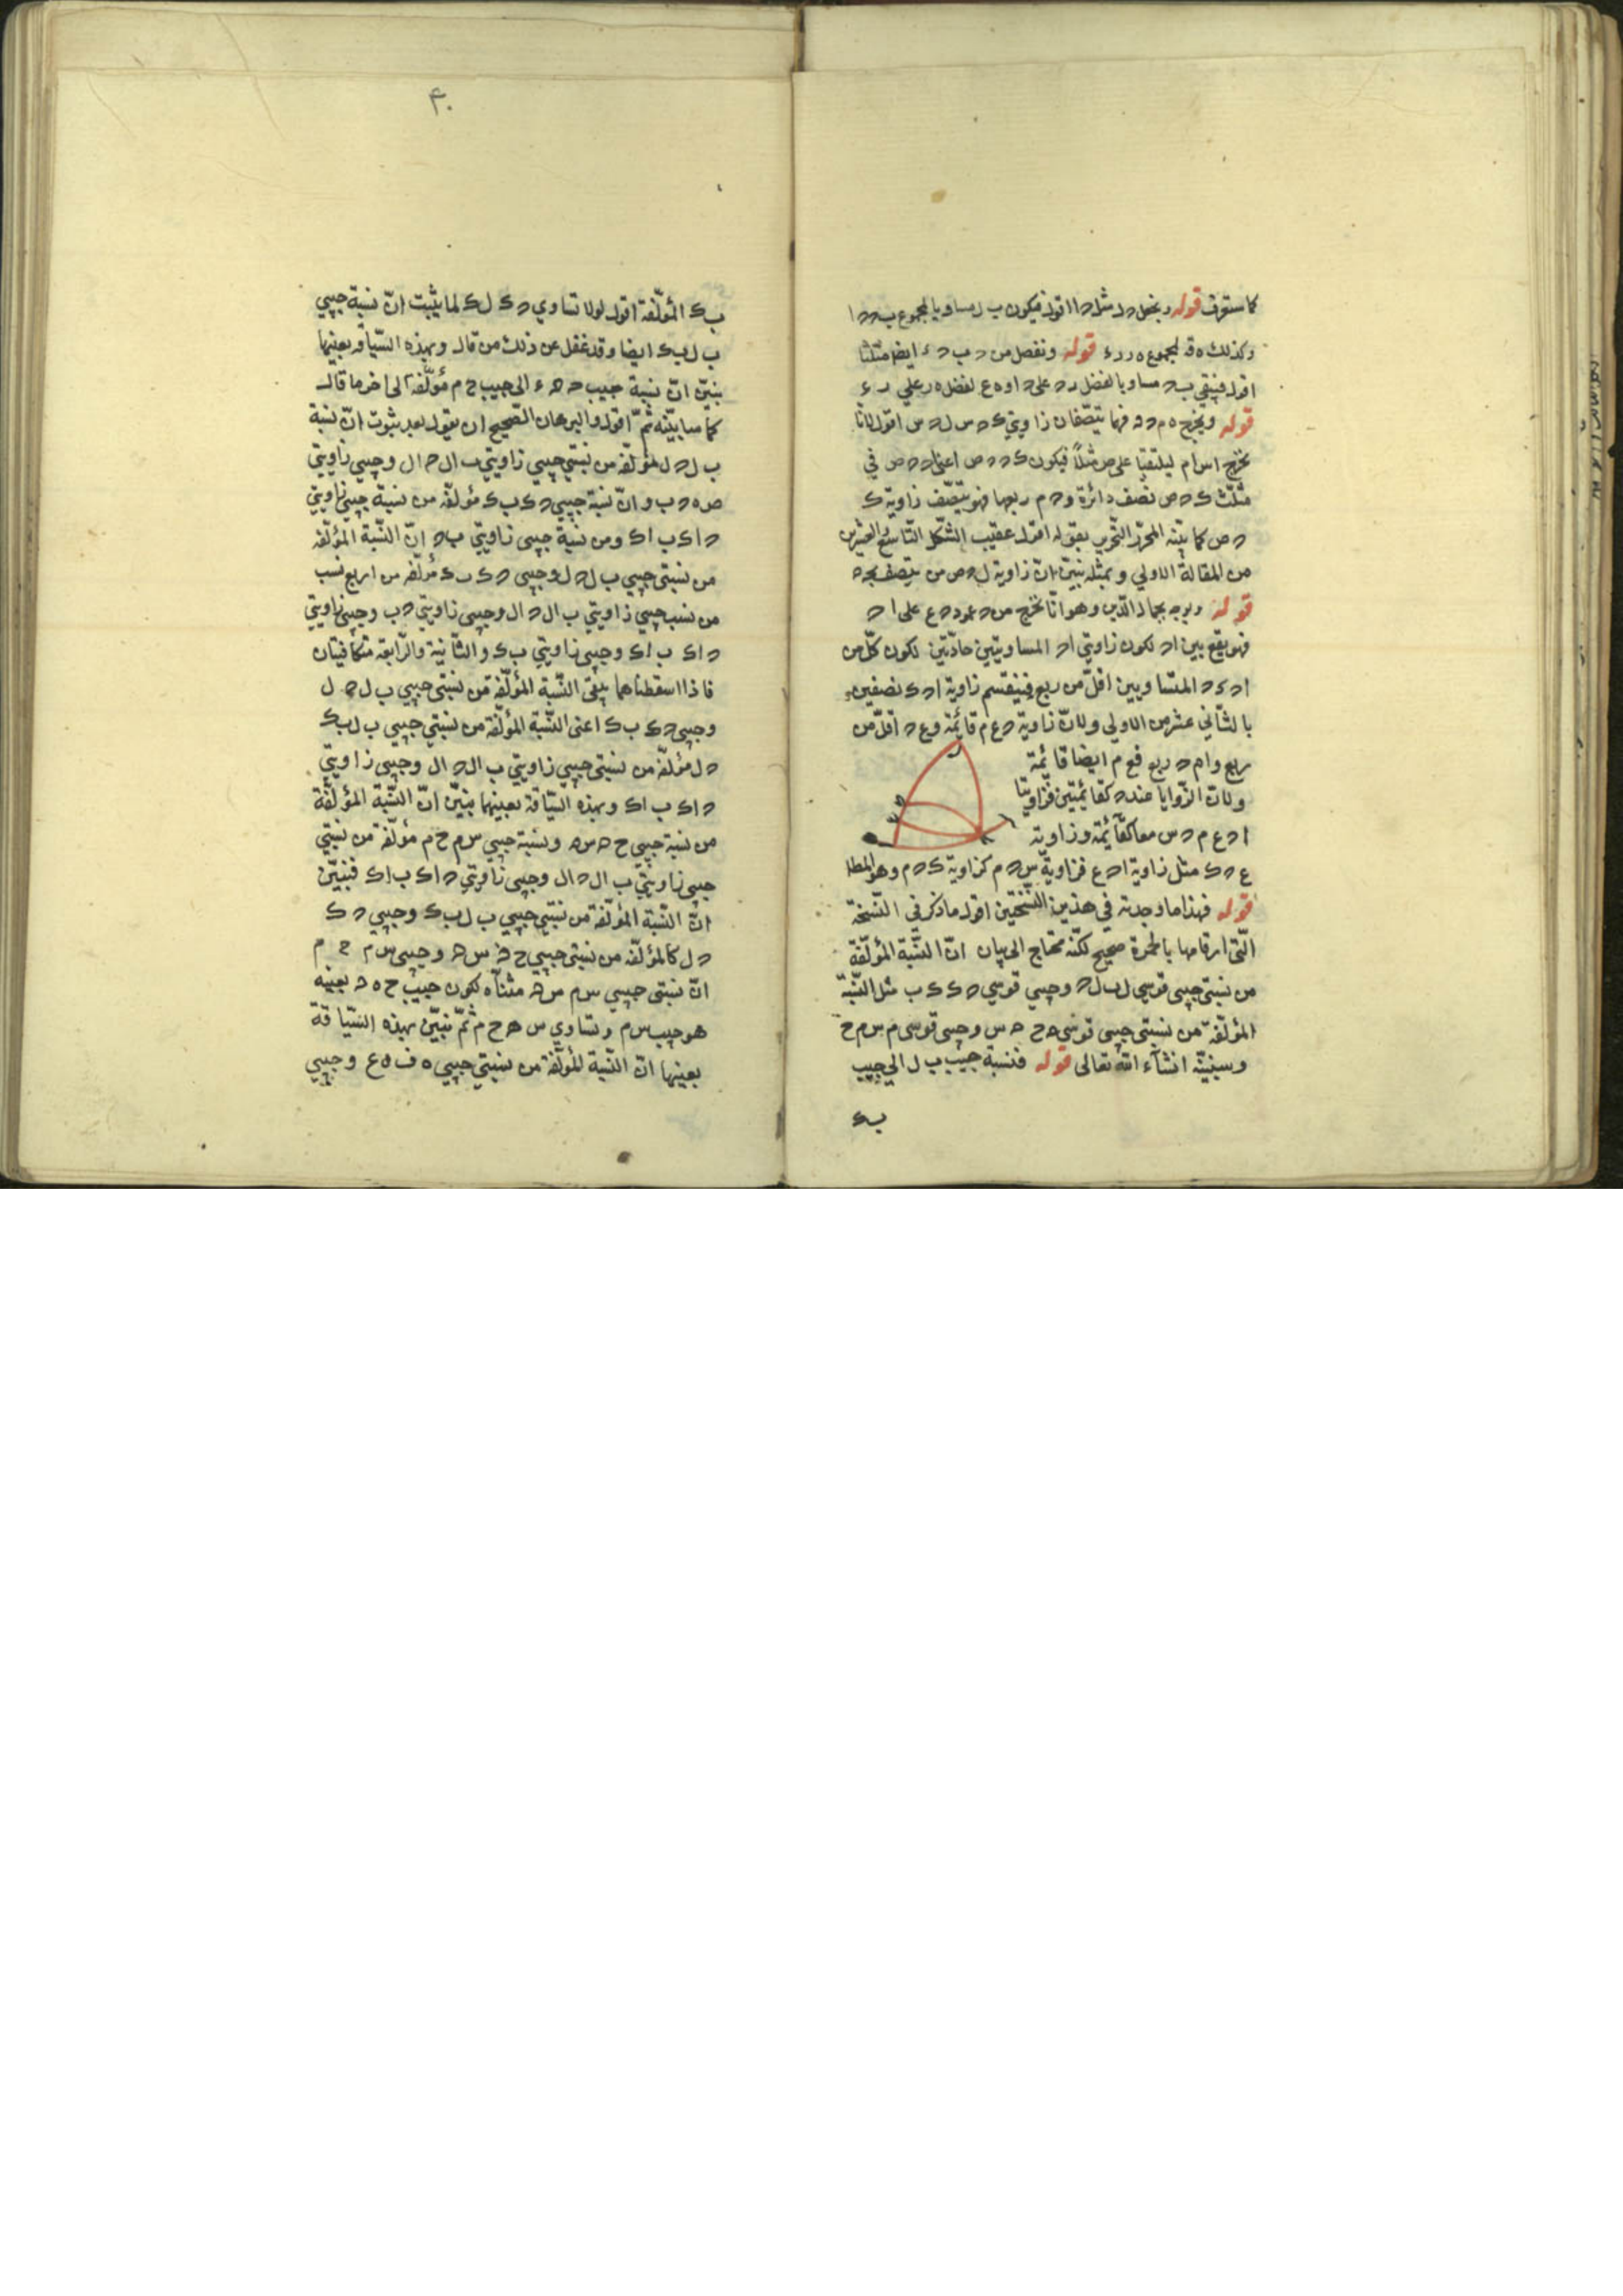 كما ستعرف قوله ونجعل د ل مثل د ا اقول فيكون ب ل مساويا لمجموع ب د د ا
وكذلك ه ق لمجموع ه ر ر ء قوله ونفصل من د ب د ء ايضا مثلثا
اقول فيبقى ب د مساويا لفضل ر د على د ا و ه ع لفضل ه ر على ر ء
قوله ونخرج ه م د د فهما ينصفان زاويتي ك د س ل د س اقول لانا
نخرج ا س ا م ليلتقيا على ص مثلا فيكون ك د د ص اعنى ا د د ص في
مثلث ك د ص نصف دائرة و د م ربعها فهو ينصف زاوية ك
د ص كما بينه المحرر التحرير بقوله اقول عقيب الشكل التاسع والعشرين
من المقالة الاولي وبمثله نبين ان زاوية ل د ص من ينصف بجد
قوله وبوجه بجاز الذين وهو انا نخرج من د عمود د ع على ا د
فهو يقع بين ا د لكون زاويتي ا د المساويتين حادتين لكون كل من
ا د ك د المتساويين اقل من ربع فينقسم زاوية ا د ك نصفين
بالثاني عشر من الاولي ولان زاوية د ع م قائمة و ع د اقل من
ربع و ا م د ربع فع م ايضا قائمة
ولان الزوايا عند د كقائمتين فزاويتا
ا د ع م د س معا كقائمة وزاوية
ع د ك مثل زاوية ا د ع فزاوية س د م كزاوية ك د م وهو المط
قوله فهذا ما وجدته في هذين النسختين اقول ما ذكر في النسخة
التي ارقامها بالحمرة صحيح لكنه محتاج الى بيان ان النسبة المؤلفة
من نسبتي جيبي قوسي ل ب ل د وجيبي قوسي د ك ك ب مثل النسبة
المؤلفة من نسبتي جيبي قوسي ه ح د س وجيبي قوسي م س م ح
وسنبينه انشآء الله تعالى قوله فنسبة جيب ب ل الى جيب
ب ك
۴۰
ب ك المؤلفة اقول لولا تساوي د ك ل ك لما يثبت ان نسبة جيبي
ب ل ب ك ايضا وقد غفل عن ذلك من قال وبهذه السياقة بعينها
نبين ان نسبة جيب د ه ء الى جيب ح م مؤلفة الى اخر ما قال
كما سابينه ثم اقول والبرهان الصحيح ان يقول بعد ثبوت ان نسبة
ب ل د ل مؤلفة من نسبتي جيبي زاويتي ب ا ل د ا ل وجيبي زاويتي
ص ه د ب وان نسبة جيبي د ك ب ك مؤلفة من نسبة جيبي زاويتي
د ا ك ب ا ك ومن نسبة جيبي زاويتي ب د ان النسبة المؤلفة
من نسبتي جيبي ب ل د ل وجيبي د ك ب ك مؤلفة من اربع نسب
من نسب جيبي زاويتي ب ا ل د ا ل وجيبي زاويتي د ب وجيبي زاويتي
د ا ك ب ا ك وجيبي زاويتي ب ك والثانية والرابعة متكافيتان
فاذا اسقطناهما يبقى النسبة المؤلفة من نسبتي جيبي ب ل د ل
وجيبي د ك ب ك اعنى النسبة المؤلفة من نسبتي جيبي ب ل ب ك
د ل مؤلفة من نسبتي جيبي زاويتي ب ا ل د ا ل وجيبي زاويتي
د ا ك ب ا ك وبهذه السياقة بعينها نبين ان النسبة المؤلفة
من نسبة جيبي ح د س ه ونسبة جيبي س م ح م مؤلفة من نسبتي
جيبي زاويتي ب ا ل د ا ل وجيبي زاويتي د ا ك ب ا ك فنبين
ان النسبة المؤلفة من نسبتي جيبي ب ل ب ك وجيبي د ك
د ل كالمؤلفة من نسبتي جيبي ح د س ه وجيبي س م ح م
ان نسبتي جيبي س م س ه مثناه لكون جيب ح ه د بعينه
هو جيب س م وتساوي س ه ح م ثم نبين بهذه السياقة
بعينها ان النسبة المؤلفة من نسبتي جيبي ه ف ه ع وجيبي